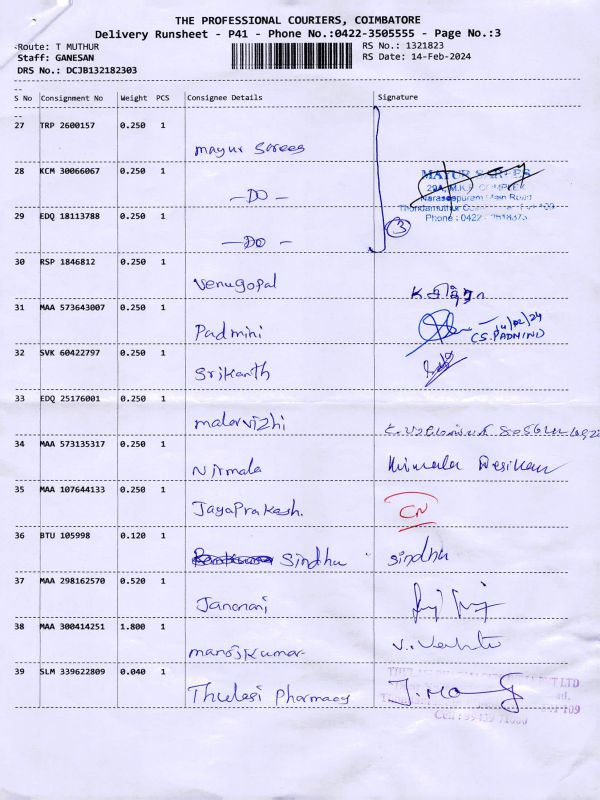 THE PROFESSIONAL COURIERS, COIMBATORE
Delivery Runsheet - P41 - Phone No.:0422-3505555 - Page No.:3
Route: T MUTHUR
RS No.: 1321823
Staff: GANESAN
RS Date: 14-Feb-2024
DRS No.: DCJB132182303
S No Consignment No Weight PCS Consignee Details Signature
27 TRP 2600157 0.250 1
Mayur Sarees
28 KCM 30066067 0.250 1
MAYUR SAREES
—DO—
29A, M.K.P. COMPLEX
Naraseepuram Main Road
29 EDQ 18113788 0.250 1
Phone : 0422 -
3
—DO—
30 RSP 1846812 0.250 1
Venugopal
31 MAA 573643007 0.250 1
14/02/24
Padmini (CS.PADMINI)
32 SVK 60422797 0.250 1
Srikanth
33 EDQ 25176001 0.250 1
malarvizhi
34 MAA 573135317 0.250 1
Nirmala Nirmala Desikan
35 MAA 107644133 0.250 1
JayaPrakesh. CN
36 BTU 105998 0.120 1
Sindhu sindhu
37 MAA 298162570 0.520 1
Jananani
38 MAA 300414251 1.800 1
manojkumar
39 SLM 339622809 0.040 1
Thulasi Pharmacy